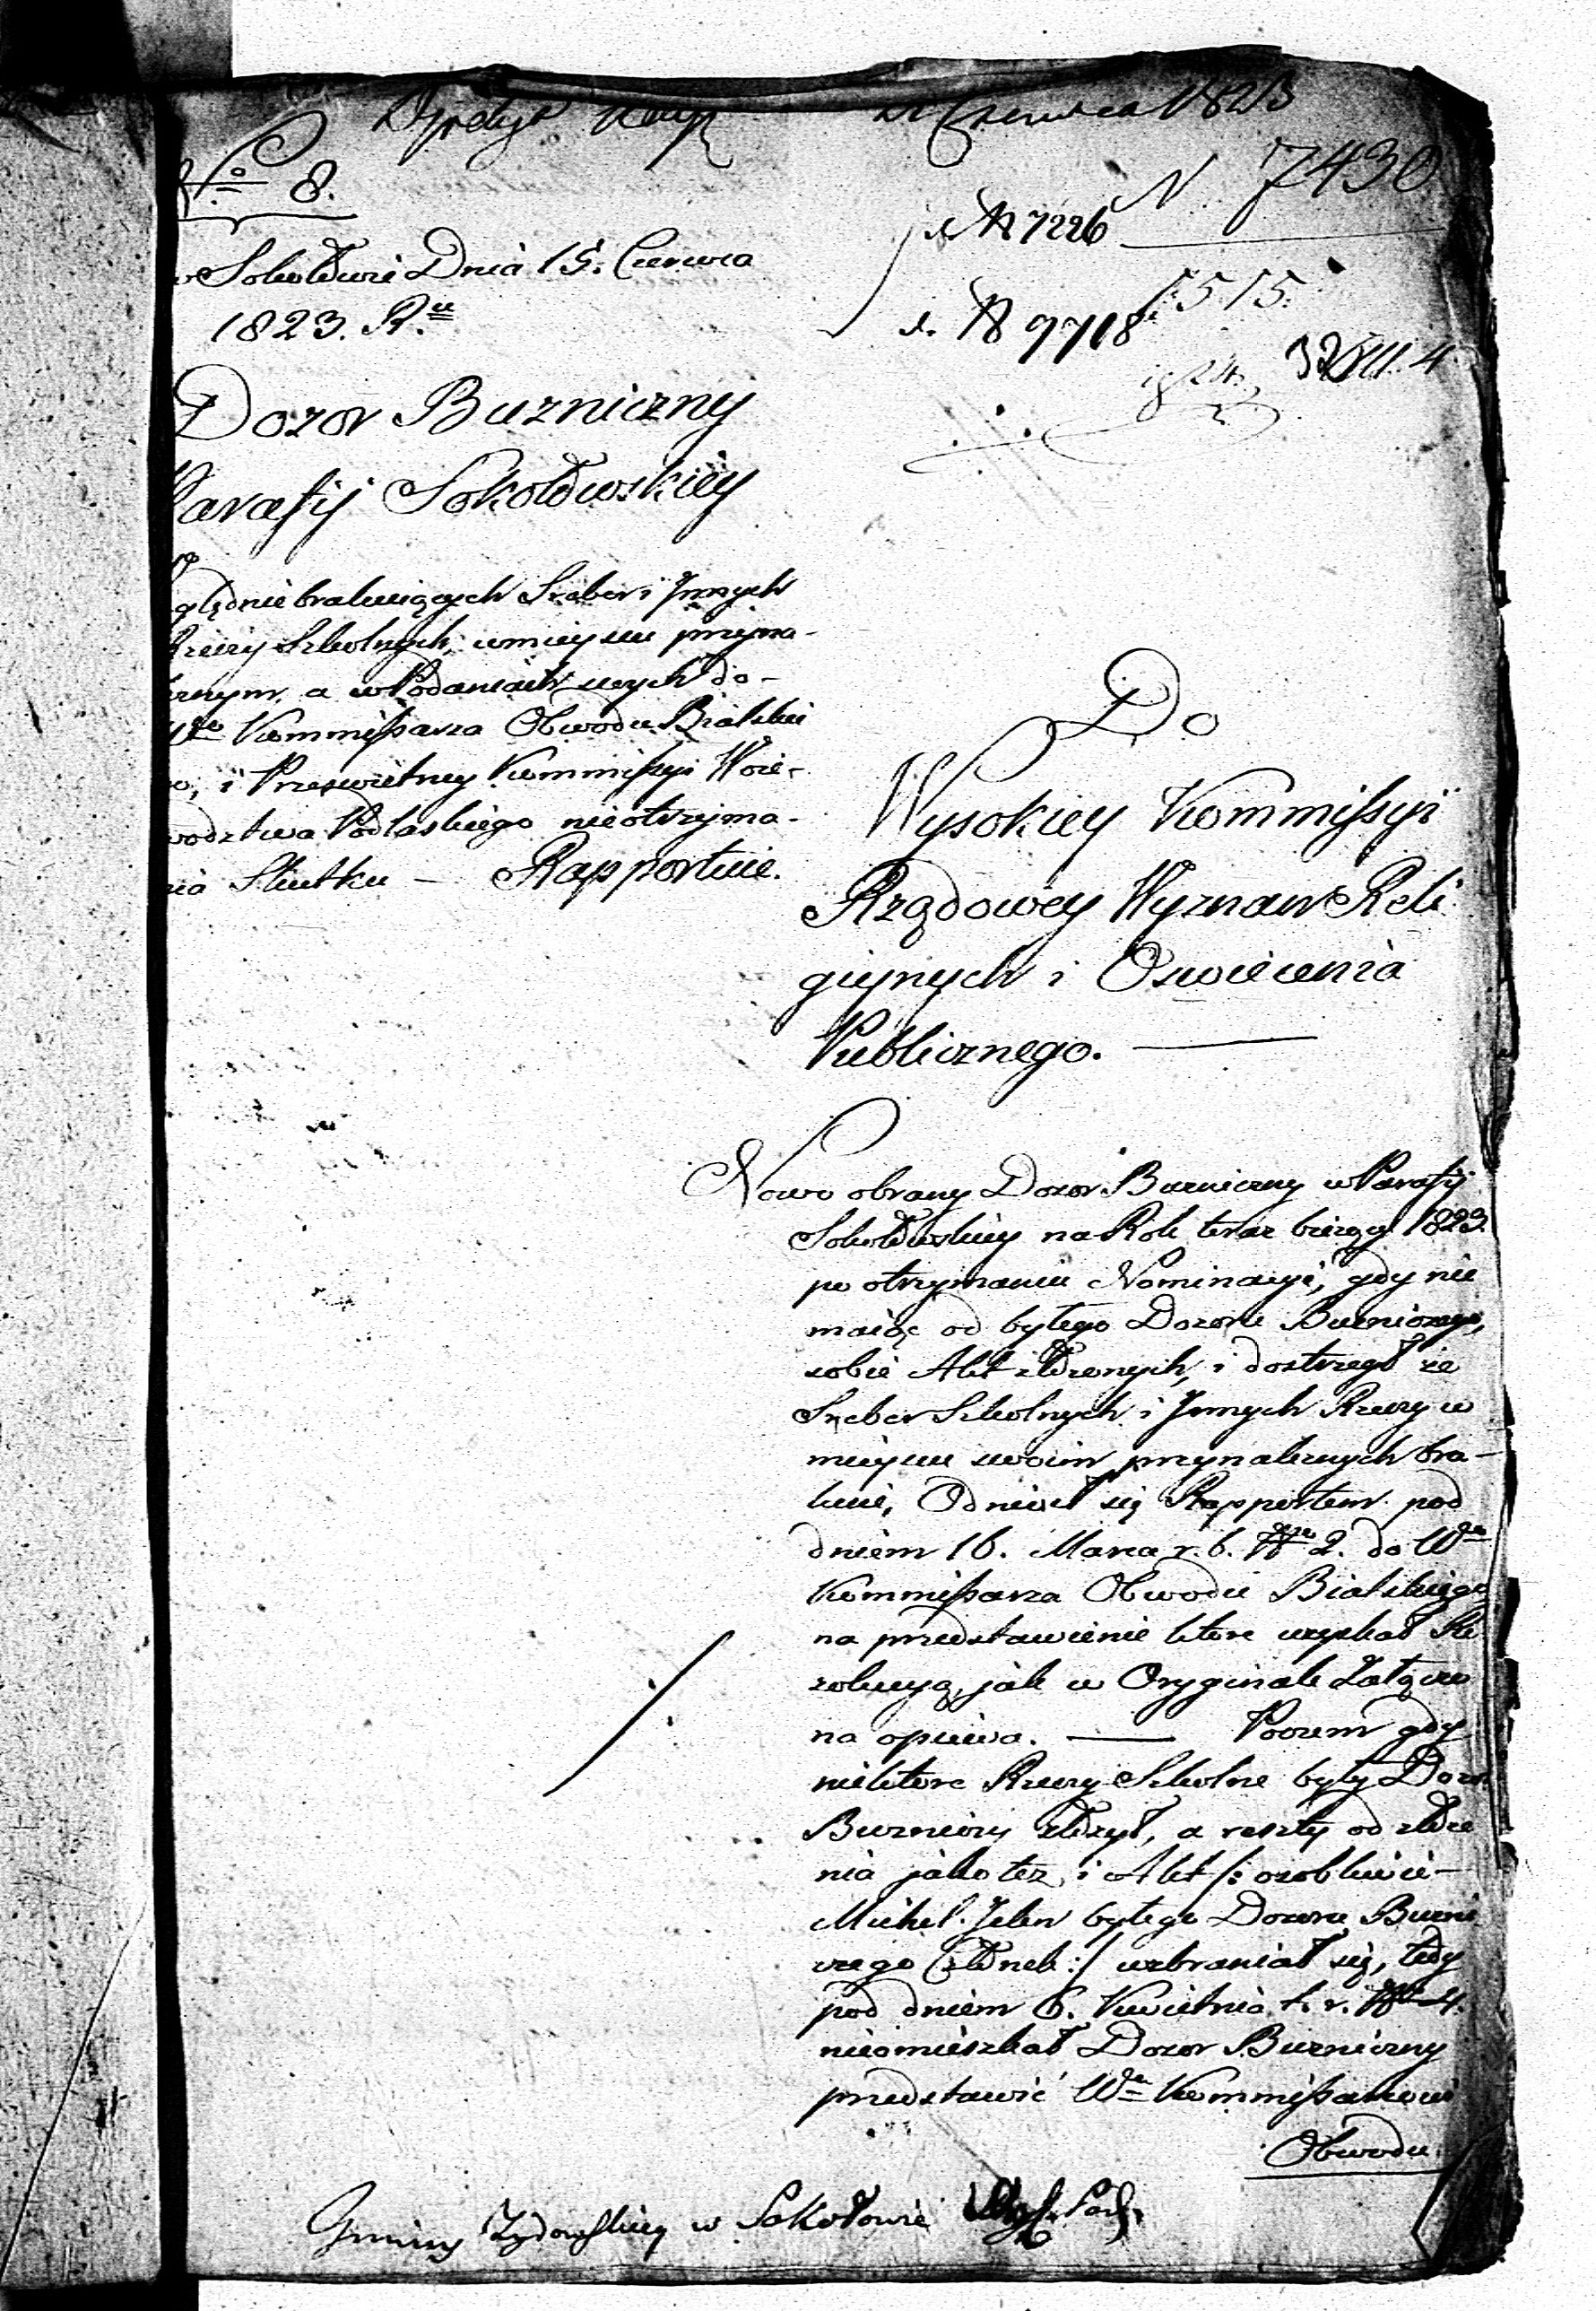 Czerwca 1823
N 7430
No 8.
d. N 7226
w Sokołowie Dnia 15. Czerwca
1823. Ru
1515.
d. N 9718
Dozor Buzniczny
Parafij Sokołowskiey
względnie brakuiących Sreber i Jnnych
Rzeczy Szkolnych, w mieyscu przyna-
leznym, a w Podaniach swych do
Wgo Kommissarza Obwodu Bialskie
go, i Prześwietney Kommissyi Woie-
wodztwa Podlaskiego nieotrzyma-
nia Skutku — Rapportuie.
Do
Wysokiey Kommissyi
Rządowey Wyznan Reli
giynych i Oswiecenia
Publicznego. —
Nowo obrany Dozor Buzniczny w Parafij
Sokołowskiey na Rok teraz bieżący 1823.
po otrzymaniu Nominacyi, gdy nie
maiąc od byłego Dozoru Buzniczego,
sobie Akt zdanych, i dostrzegł że
Sreber Szkolnych i Jnnych Rzeczy w
mieyscu swoim przynaleznych bra-
kuie, Odniosł się Rapportem pod
dniem 16. Marca r. b. No 2. do Wgo
Kommissarza Obwodu Bialskiego
na przedstawienie ktore uzyskał Re
zolucyą, jak w Oryginale Załączo
na opiewa. — Poczem gdy
niektore Rzeczy Szkolne były Dozor
Buzniczy zdał, a reszty od zda
nia jako też i Akt /: osobliwie
Michel Jelen byłego Dozoru Buzni
czego Członek :/ wzbraniał się, tedy
pod dniem 6. Kwietnia t. r. No 4.
nieomieszkał Dozor Buzniczny
przedstawić Wu Kommissarzowi
Obwodu
Gminy Zydowskiey w Sokołowie